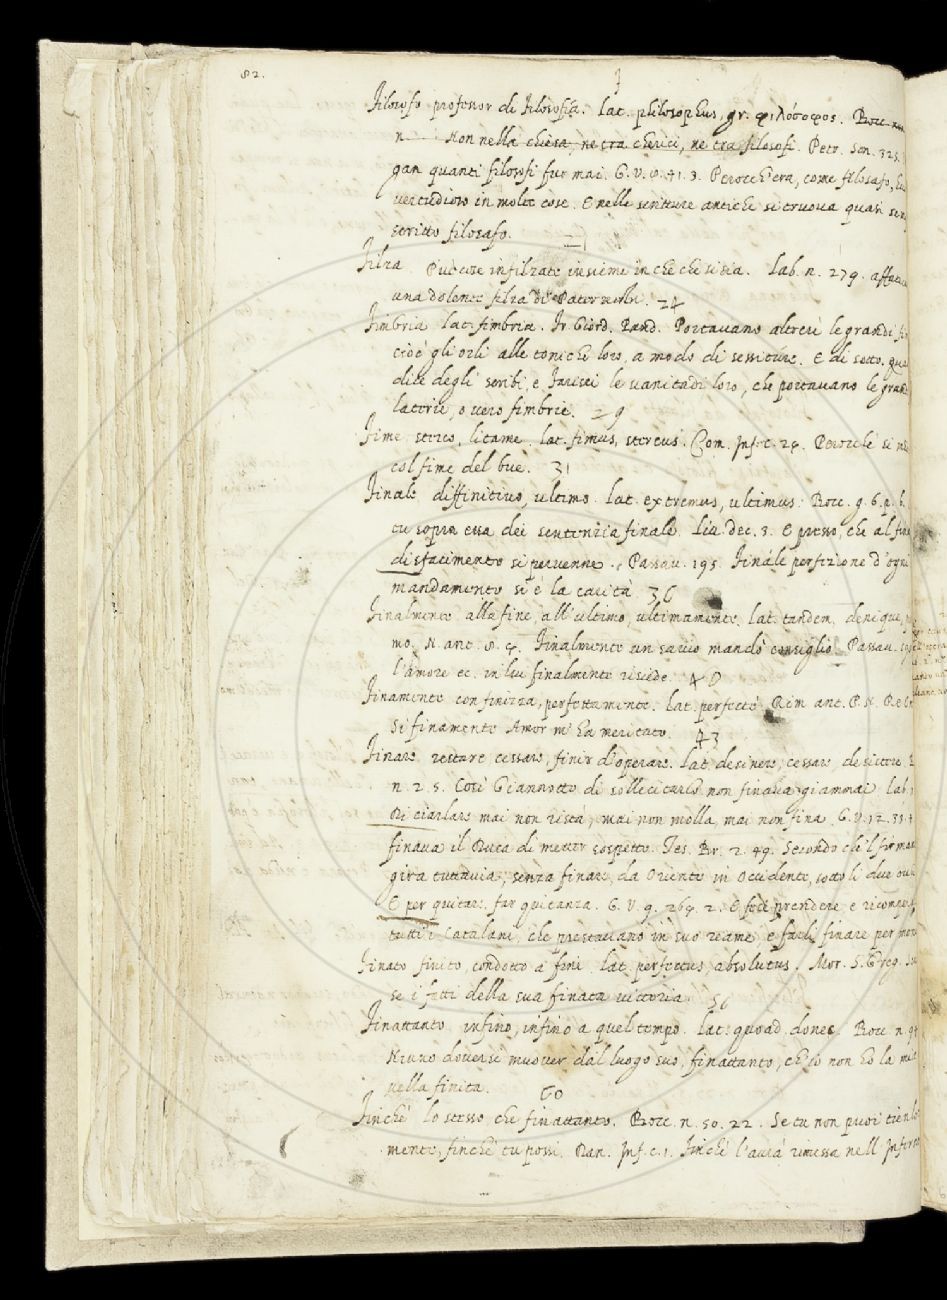 82.
F
Filosofo professor di filosofia. Lat. philosophus, gr. φιλόσοφος. Bocc.
n. Non nella chiesa, ne tra cherici, ne tra filosofi. Petr. Son. 325.
gan quanti filosofi fur mai. G. V. 8. 41. 3. Perocch'era, come filosafo,
vertudioso in molte cose. E nelle scritture antiche si truova quasi sem
scritto filosafo.
21
Filza. Più cose infilzate insieme in che che si sia. Lab. n. 279.
una dolente filza di Paternostri. 24
Fimbria lat. fimbria. Fr. Giord. Pred. Portavano altresì le grandi fi
cioè gli orli alle toniche loro, a modo di sessiture. E di sotto. que
dice degli scribi, e Farisei le vanitadi loro, che portavano le grand
latorie, o vero fimbrie. 29
Fime. sterco, litame. lat. fimus, stercus. Com. Inf. c. 24. Perocché si
col fime del bue. 31
Finale diffinitivo, ultimo. Lat. extremus, ultimus. Bocc. g. 6. p. 6.
tu sopra essa dei sentenzia finale. Liv. dec. 3. E presso, che al fina
disfacimento si pervenne. Passav. 195. Finale perfezione d'ogni
mandamento si è la carità. 36
Finalmente alla fine, all'ultimo, ultimamente. lat. tandem, denique,
mo. N. ant. 8. 4. Finalmente un savio mandò consiglio. Passav.
l'amore ec. in lui finalmente risiede. 40
Finamente con finezza, perfettamente. lat. perfectè. Rim. ant. P. N. Re En
Si finamente Amor m'ha meritato. 43
Finare restare cessare, finir d'operare. Lat. desinere, cessare, desistere.
n. 2. 5. Così Giannotto di sollecitarlo non finava giammai. Lab.
Di ciarlare mai non resta, mai non molla, mai non fina. G. V. 12. 33.
finava il Duca di metter sospetto. Tes. Br. 2. 49. Secondo che'l firmam
gira tuttavia, senza finare, da Oriente in Occidente, sotto li due
E per quitare, far quitanza. G. V. 9. 264. 2. E fece prendere, e ricomperar
tutti i Catalani, che prestavano in suo reame, e farli finare per mon
Finato finito, condotto a fine. lat. perfectus, absolutus. Mor. S. Greg.
se i fatti della sua finata vittoria. 56
Finattanto. infino, infino a quel tempo. lat. quoad, donec. Bocc. n.
Niuno doversi muover dal luogo suo, finattanto, ch'io non ho la mia
vella finita. 60
Finchè lo stesso che finattanto. Bocc. n. 50. 22. Se tu non puoi tienlo
mente, finchè tu possi. Dan. Inf. c. 1. Finchè l'avrà rimessa nell'Inferno